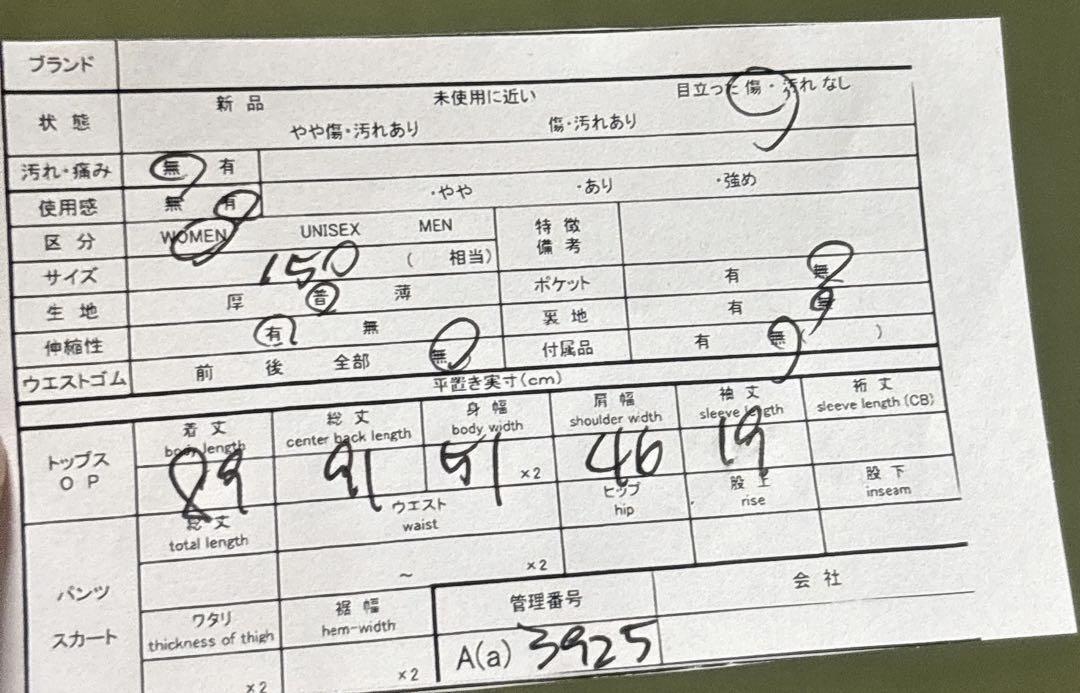 ブランド
状態 新品 未使用に近い 目立った傷・汚れなし
やや傷・汚れあり 傷・汚れあり
汚れ・痛み 無 有
使用感 無 有 ・やや ・あり ・強め
区分 WOMEN UNISEX MEN 特徴備考
サイズ 150 ( 相当) ポケット 有 無
生地 厚 普 薄 裏地 有 無
伸縮性 有 無 付属品 有 無 ( )
ウエストゴム 前 後 全部 無
平置き実寸(cm)
トップス OP
着丈 総丈 身幅 肩幅 袖丈 裄丈
body length center back length body width shoulder width sleeve length sleeve length (CB)
89 91 51 ×2 46 19
総丈 ウエスト ヒップ 股上 股下
total length waist hip rise inseam
パンツ スカート
~ ×2
ワタリ 裾幅 管理番号 会社
thickness of thigh hem-width
×2 ×2 A(a) 3925